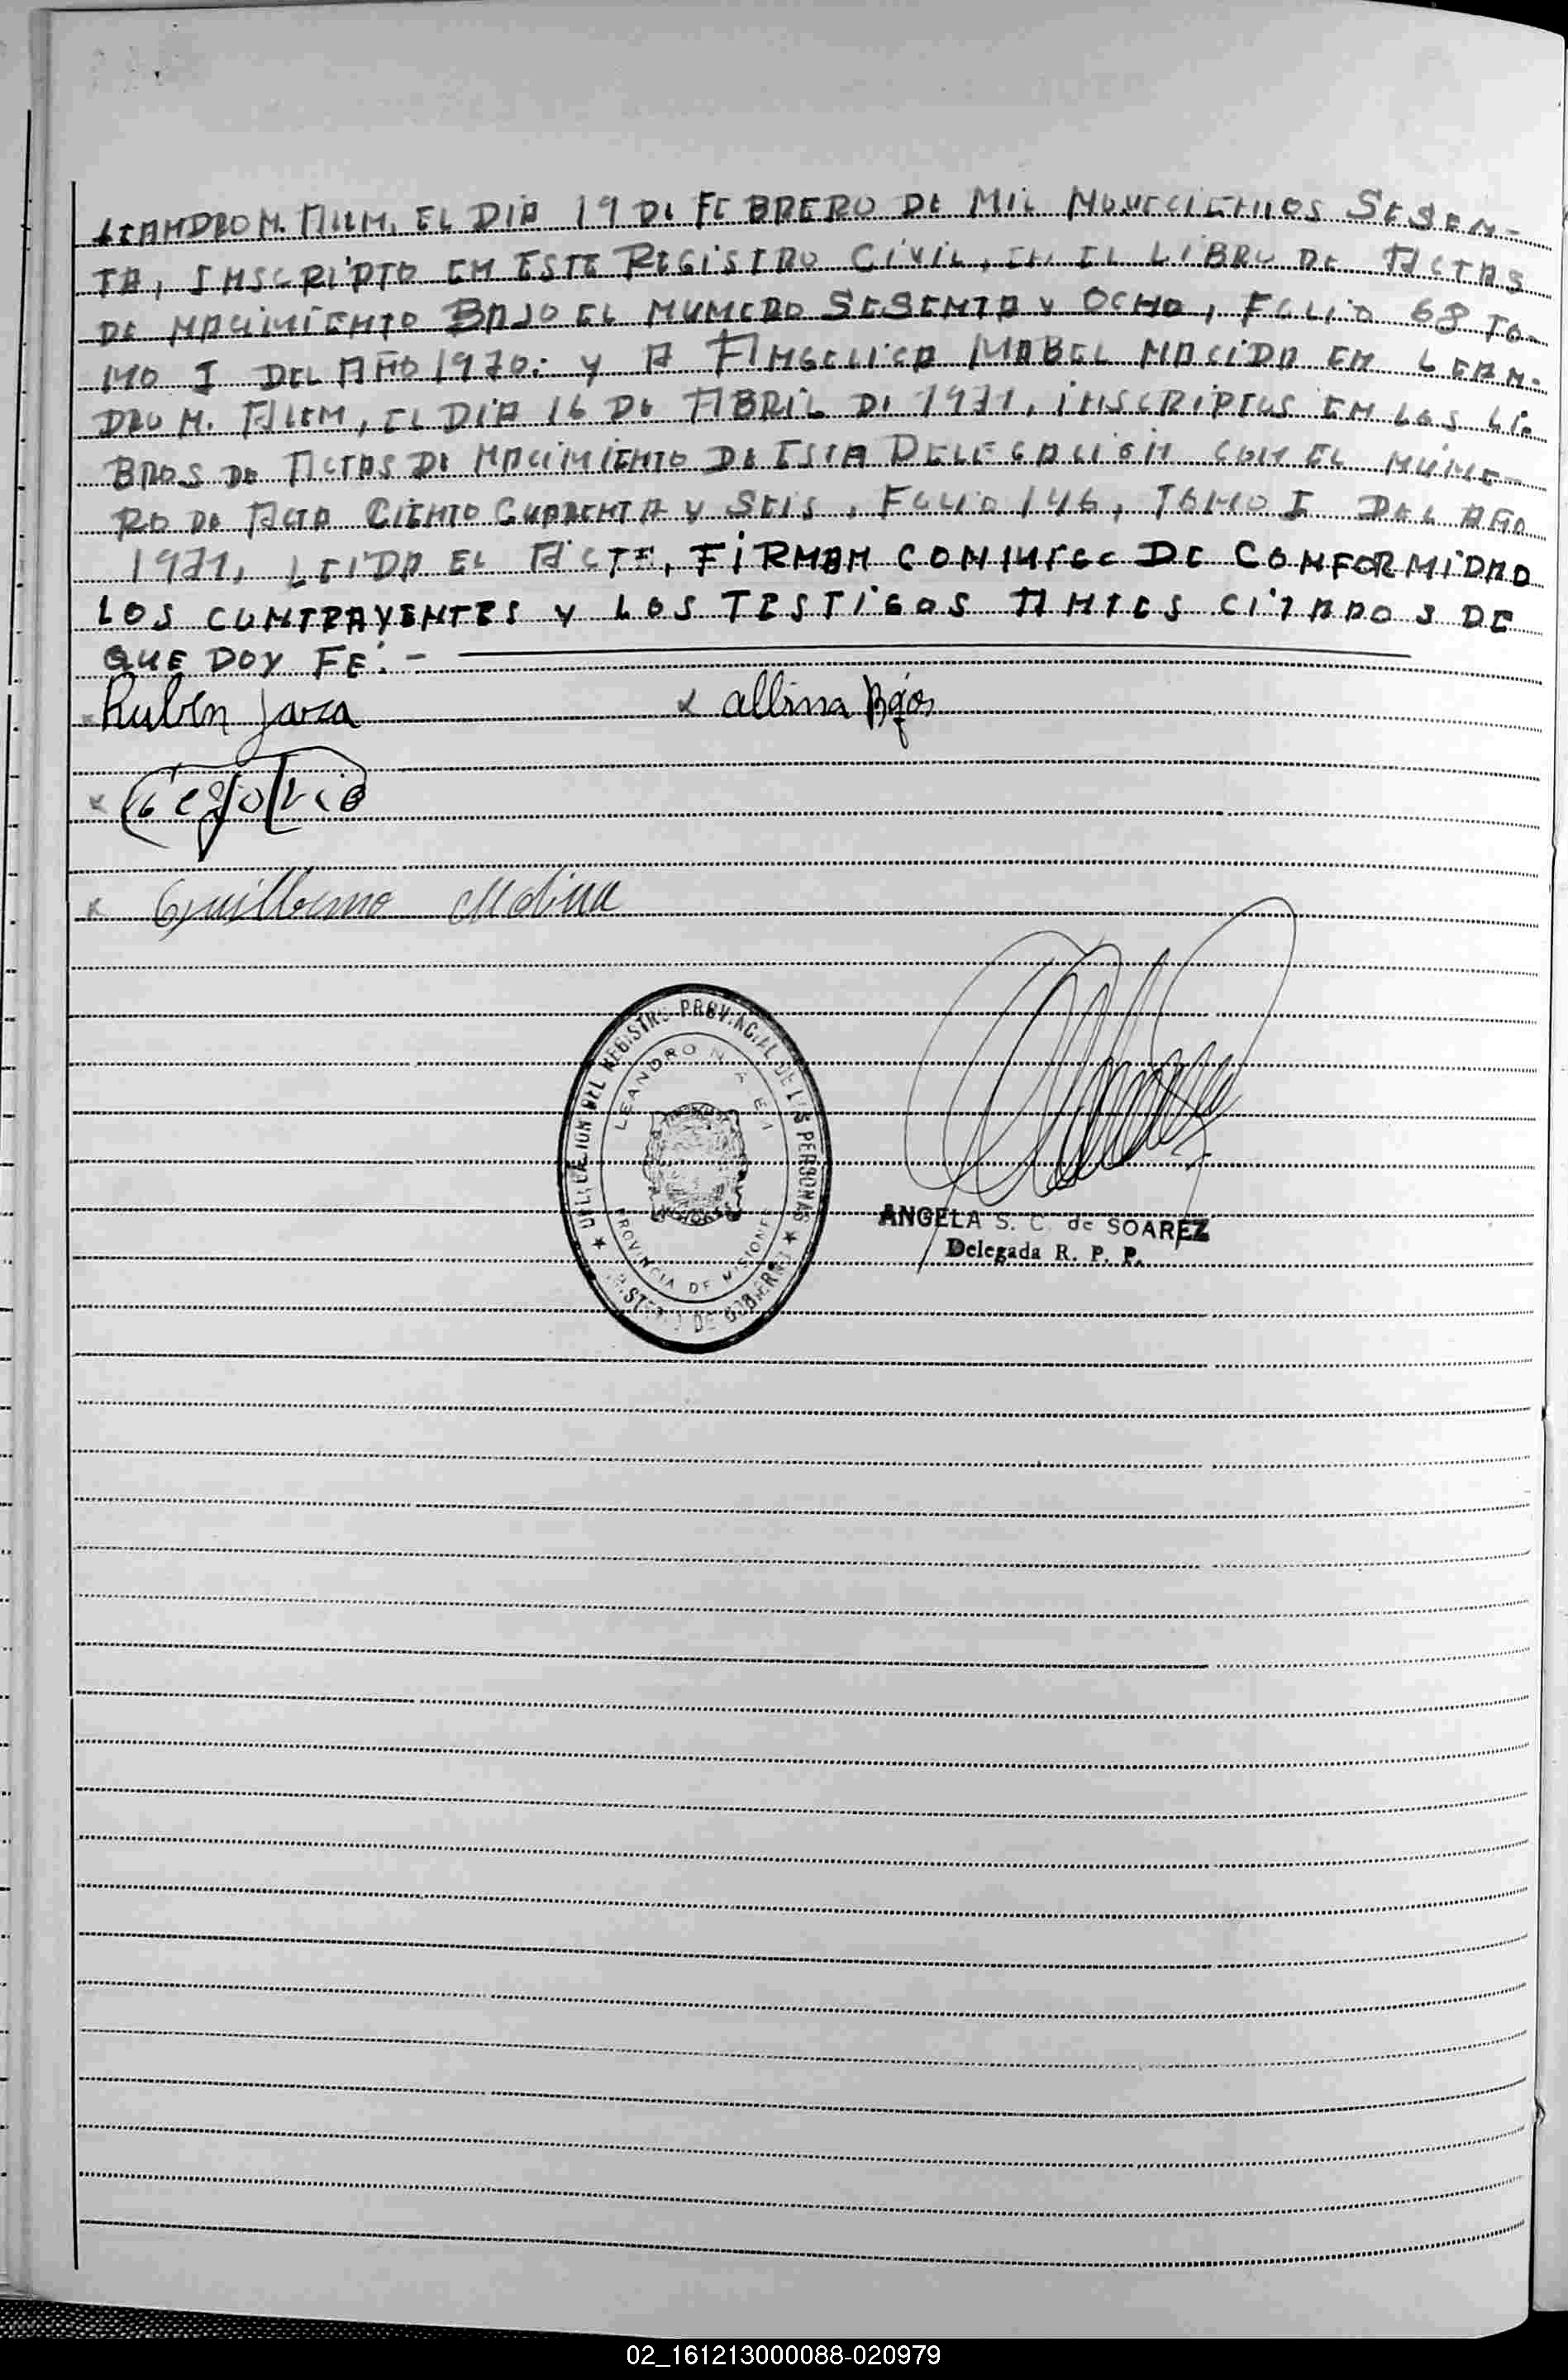 LEANDRO N. ALEM, EL DIA 19 DE FEBRERO DE MIL NOVECIENTOS SESEN-
TA, INSCRIPTO EN ESTE REGISTRO CIVIL, EN EL LIBRO DE ACTAS
DE NACIMIENTO BAJO EL NUMERO SESENTA Y OCHO, FOLIO 68 TO-
MO I DEL AÑO 1970: Y A ANGELICA MABEL NACIDA EN LEAN-
DRO N. ALEM, EL DIA 16 DE ABRIL DE 1971, INSCRIPTOS EN LOS LI-
BROS DE ACTAS DE NACIMIENTO DE ESTA DELEGACIÓN CON EL NÚME-
RO DE ACTA CIENTO CUARENTA Y SEIS, FOLIO 146, TOMO I DEL AÑO
1971, LEIDA EL ACTA, FIRMAN CONMIGO DE CONFORMIDAD
LOS CONTRAYENTES Y LOS TESTIGOS ANTES CITADOS DE
QUE DOY FE: -
Rubén Jara x Albina
x
x Guillermo Molina
DELEGACION DEL REGISTRO PROVINCIAL DE LAS PERSONAS
LEANDRO N. ALEM
PROVINCIA DE MISIONES
MINISTERIO DE GOBIERNO
ANGELA S. C. de SOAREZ
Delegada R. P. P.
02_161213000088-020979